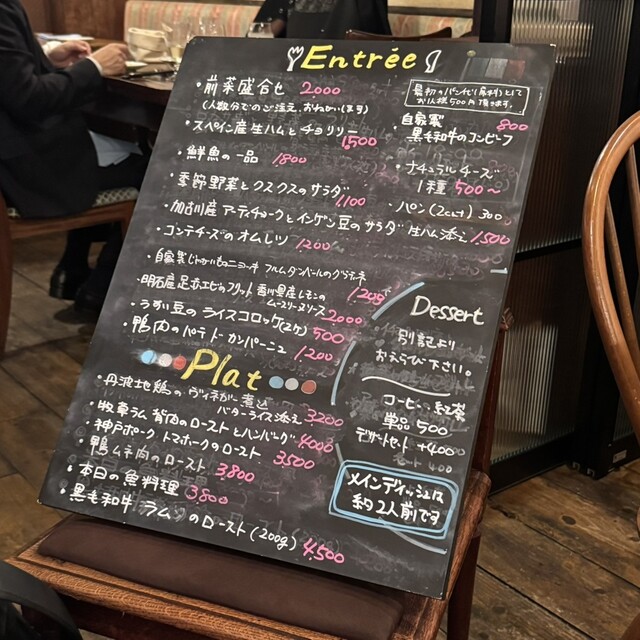 Entrée
・前菜盛合せ 2,000
(人数分でのご注文、おねがいします)
・スペイン産生ハムとチョリソー 1,500
・鮮魚の一品 1800
・季節野菜とクスクスのサラダ 1,100
・加古川産アーティチョークとインゲン豆のサラダ 生ハム添え 1,500
・コンテチーズのオムレツ 1200
・自家製じゃがいものニョッキ フルムダンベールのグラチネ
・明石産足赤エビのフリット 香川県産レモンの
ムースリーヌソース 2,000
・うすい豆のライスコロッケ(2ケ) 500
・鴨肉のパテ・ド・カンパーニュ 1,200
お1人様500円頂きます。
・自家製 800
黒毛和牛のコンビーフ
・ナチュラルチーズ
1種 500〜
・パン(2cut) 300
Plat
・丹波地鶏のヴィネガー煮込
バターライス添え 3200
・牧草ラム 背肉のローストとハンバーグ 4000
・神戸ポーク トマホークのロースト 3,500
・鴨ムネ肉のロースト 3,800
・本日の魚料理 3800
・黒毛和牛 ランプのロースト(200g) 4,500
Dessert
別記より
おえらび下さい。
コーヒー、紅茶
単品 500
デザートセット +400
メインディッシュは
約2人前です